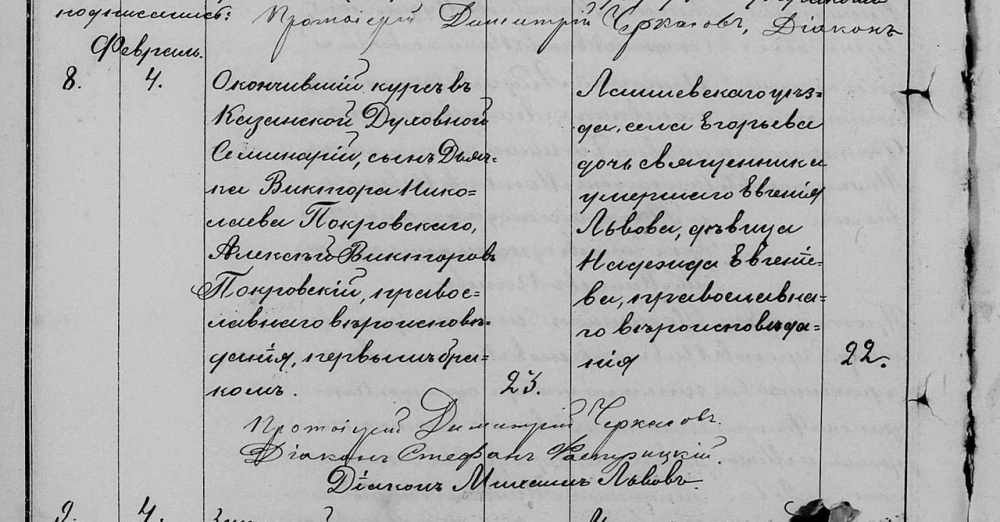 подписались:
Протоіерей Димитрій Черкасовъ, Діаконъ
Февраль.
8. 4.
Окончившій курсъ въ
Казанской Духовной
Семинаріи, сынъ Дьяч-
ка Виктора Нико-
лаева Покровскаго,
Алексѣй Викторовъ
Покровскій, правос-
лавнаго вѣроисповѣ-
данія, первымъ бра-
комъ. 23.
Лаишевскаго уѣз-
да, села Егорьева
дочь священника
умершаго Евгенія
Львова, дѣвица
Надежда Евгеніе-
ва, православна-
го вѣроисповѣда-
нія 22.
Протоіерей Димитрій Черкасовъ.
Діаконъ Стефанъ
Діаконъ Михаилъ Львовъ.
9. 4.